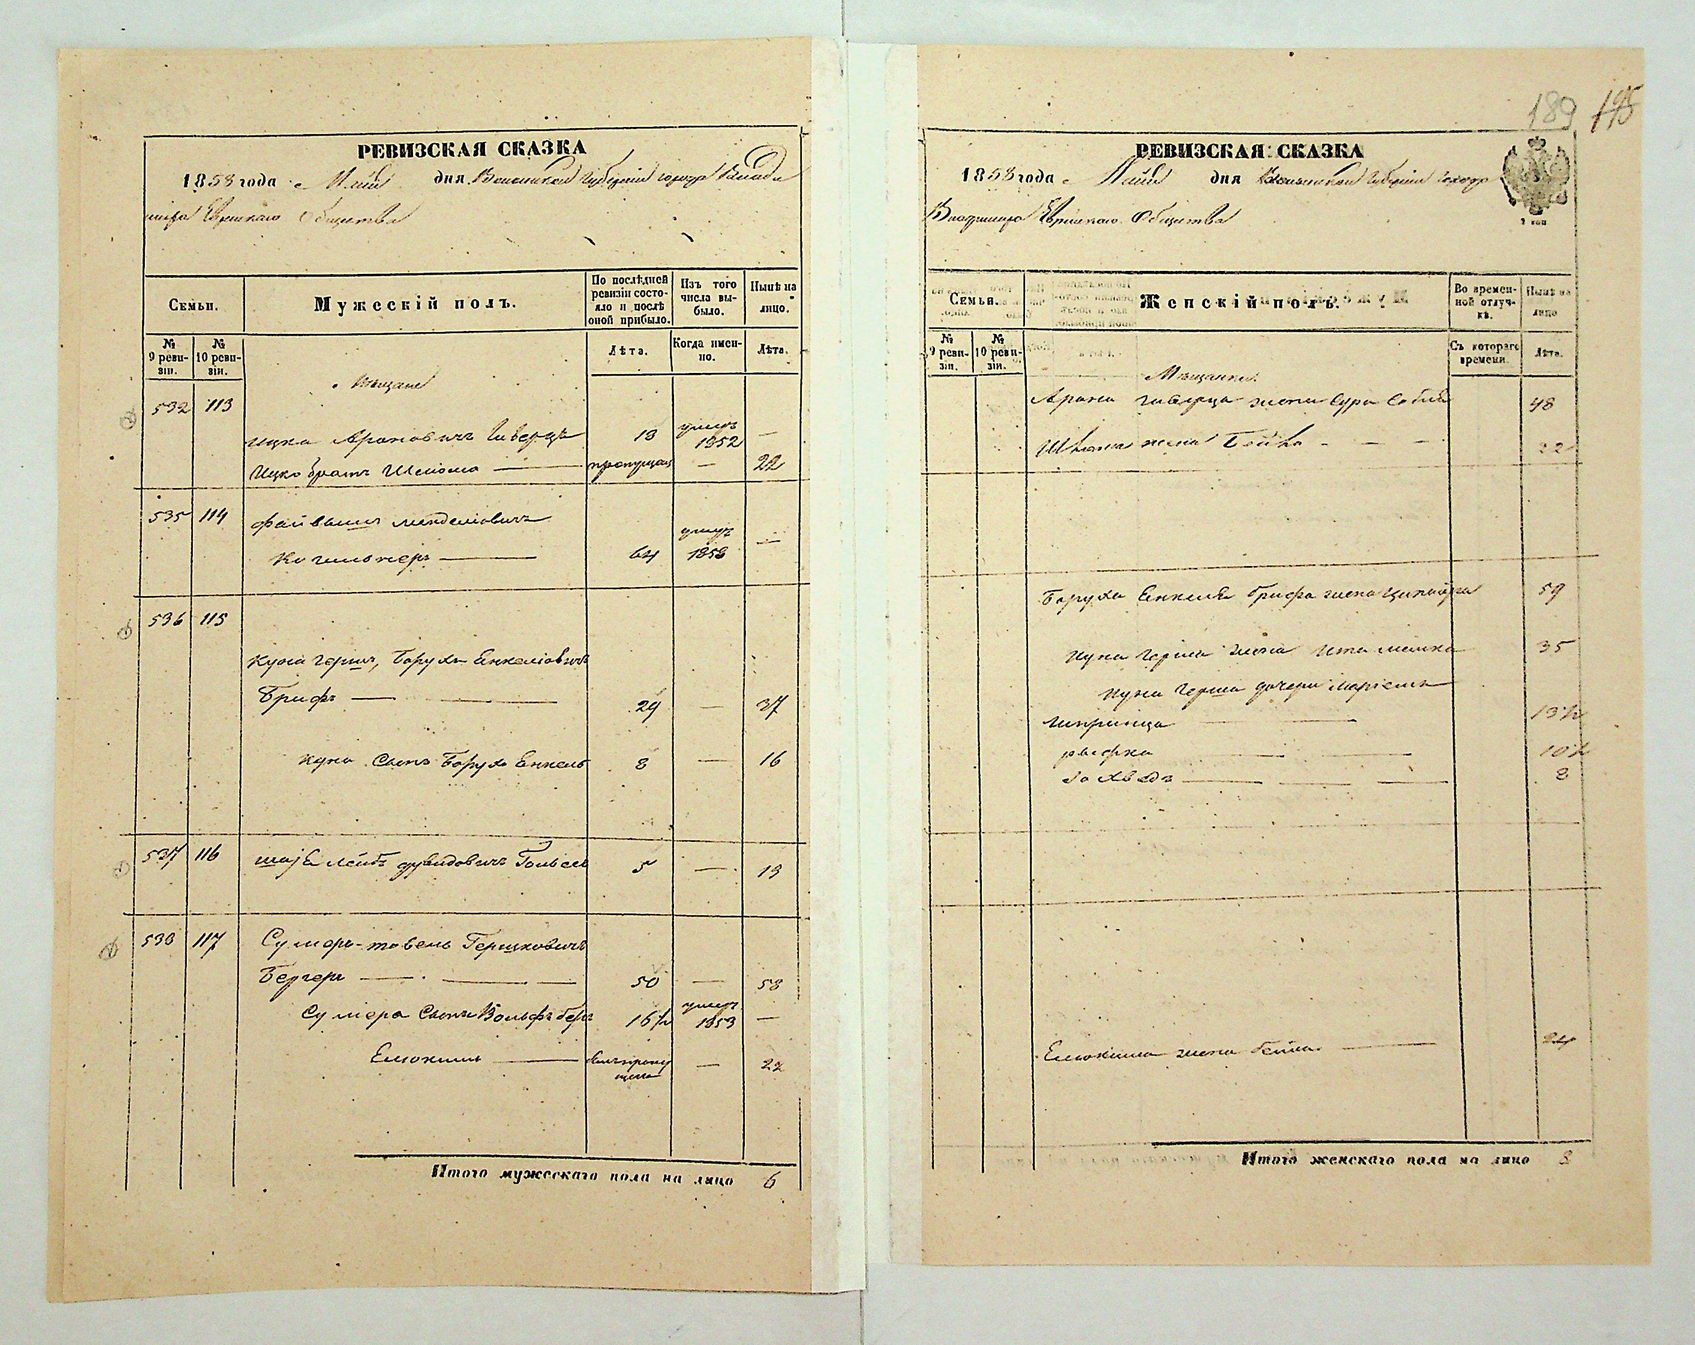 РЕВИЗСКАЯ СКАЗКА
1858 года Маія дня Волынской Губерніи города Влади
міра Еврейскаго Общества
Семьи.
Мужескій полъ.
По послѣдней ревизіи состояло и послѣ оной прибыло.
Изъ того числа выбыло.
Нынѣ на лицо.
№ 9 ревизіи.
№ 10 ревизіи.
Лѣта.
Когда именно.
Лѣта.
Мѣщане
532 113
Ицко Ароновичъ 13 умеръ 1852 —
Ицко братъ Шлиома — пропущенъ — 22
535 114 Файвишъ Менделіовичъ
— 64 умеръ 1858 —
536 115
Куна Герш, Борухъ Енкеліовичъ
Брифъ — — 29 — 37
Куна Сынъ Борухъ Енкель 8 — 16
537 116 Лейбъ Дувидовичъ 5 — 13
538 117 Сумеръ-товель Гершковичъ
Бергеръ — — — 50 — 58
Сумера Сынъ Вольфъ беръ 16½ умеръ 1853 —
Елюкимъ — былъ пропущенъ — 22
Итого мужескаго пола на лицо 6
189 195
РЕВИЗСКАЯ СКАЗКА
1858 года Маія дня Волынской Губерніи города
Владиміра Еврейскаго Общества
Семьи.
Женскій полъ.
Во временной отлучкѣ.
Нынѣ на лицо
№ 9 ревизіи.
№ 10 ревизіи.
Съ котораго времени.
Лѣта.
Мѣщанки.
Арона жена Сура 48
жена Бейла - — — 22
Боруха Енкеля Брифа жена 59
Куна Герша жена Ита 35
Куна Герша дочери
— — 13½
рыфка — — 10½
— — — 8
Елюкима жена бейла — 24
Итого женскаго пола на лицо 8